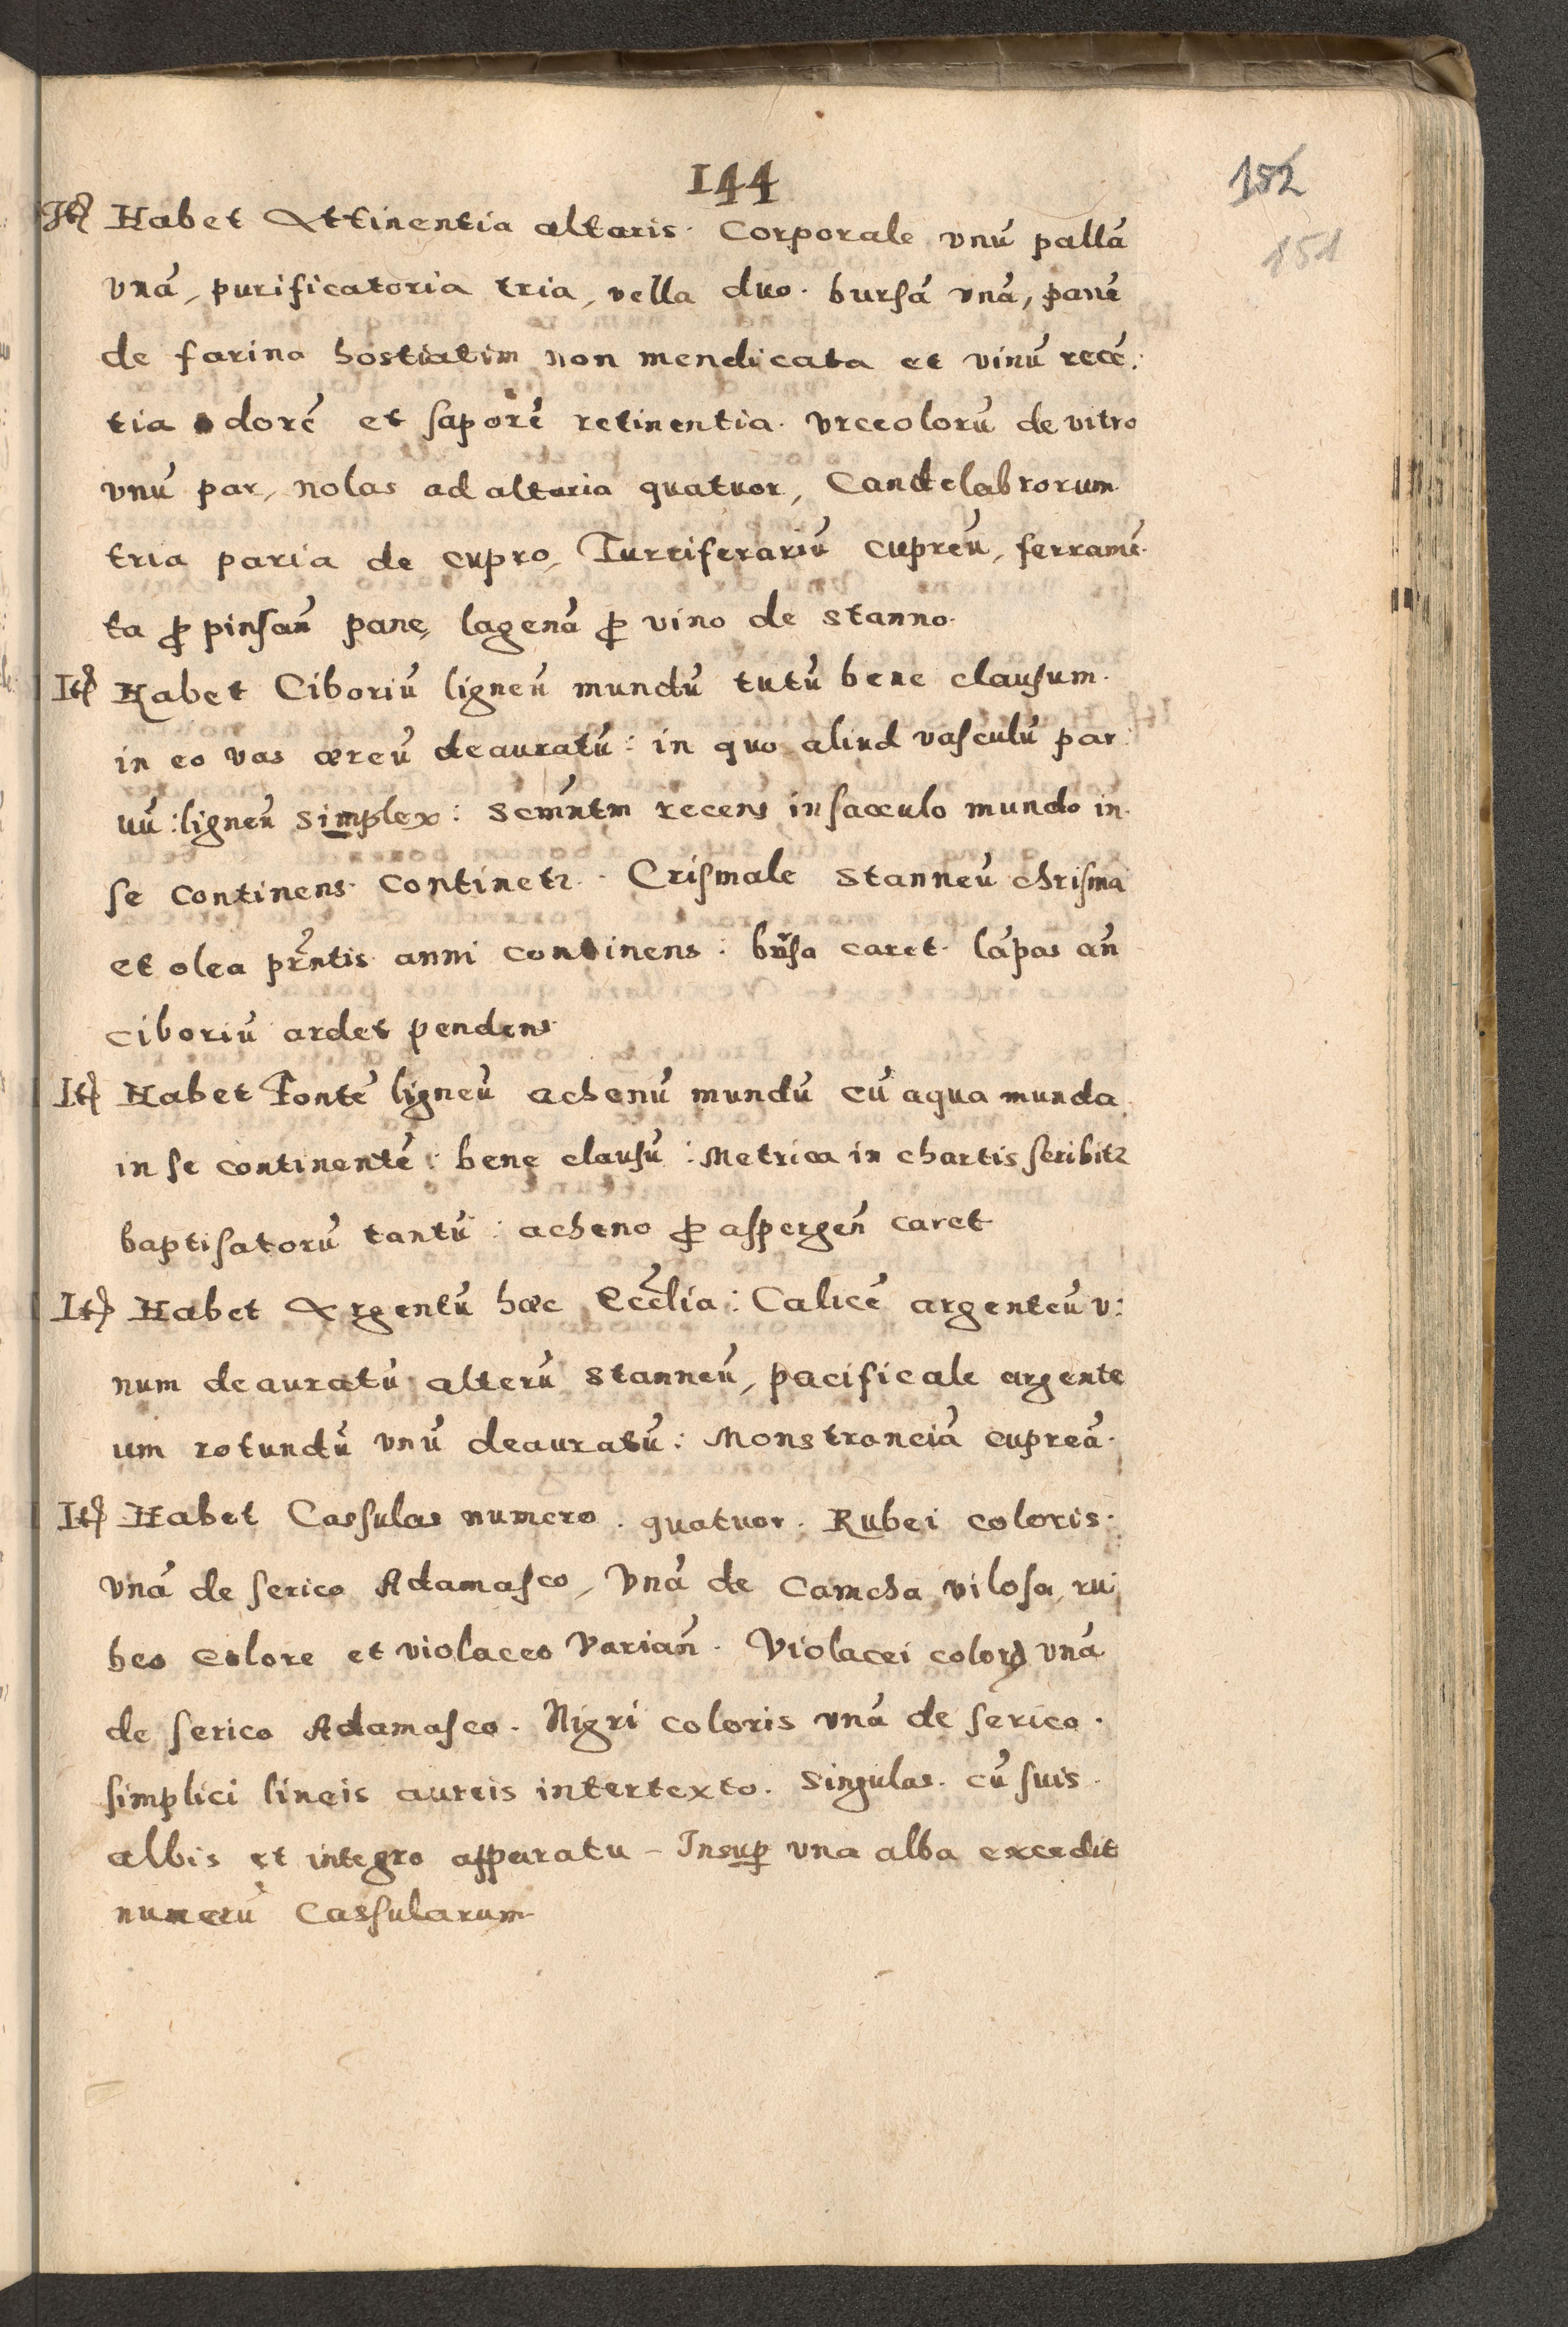 144
152
151
Itē Habet Attinentia altaris. Corporale vnū pallā
vnā, purificatoria tria, vella duo. bursā vnā, panē
de farina hostiatim non mendicata et vinū recē:
tia odorē et saporē retinentia. vrceolorū de vitro
vnū par, nolas ad altaria quatuor, Candelabrorum
tria paria de cupro, Turriferariū cupreū, ferramē-
ta ꝓ pinsan̄ pane, lagenā ꝓ vino de stanno.
Itē Habet Ciboriū ligneū mundū tutū bene clausum.
in eo vas æreū deauratū: in quo aliud vasculū par
uū: ligneū simplex: Scm̄ntm recens in sacculo mundo in
se continens continetr. Crismale stanneū chrisma
et olea pr̄ntis anni continens: bursa caret. lāpas an̄
ciboriū ardet pendens
Itē Habet Fontē ligneū achenū mundū cū aqua munda
in se continentē: bene clausū: Metrica in chartis scribitr
baptisatorū tantū: acheno ꝓ aspergen̄ caret
Itē Habet Argentū hæc Eccl̄ia: Calicē argenteū v:
num deauratū alterū stanneū, pacificale argente
um rotundū vnū deauratū: Monstranciā cupreā.
Itē Habet Cassulas numero. quatuor. Rubei coloris.
vnā de serico Adamasco, Vnā de Camcha vilosa, ru
beo colore et violaceo Varian̄. Violacei coloris vnā
de serico Adamasco. Nigri coloris vnā de serico.
simplici lineis aureis intertexto. Singulas. cū suis.
albis et integro apparatu - Insuꝑ vna alba excedit
numerū Cassularum